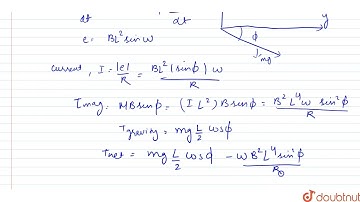 dt dt
e = BL² sin ω
y
φ
mg
current, I = |e|/R = BL²(sinφ) ω / R
τmag = MB sinφ = (I L²) B sinφ = B² L⁴ ω sin²φ / R
τgraving = mg L/2 cosφ
τnet = mg L/2 cosφ - ω B² L⁴ sin²φ / R
doubtnut